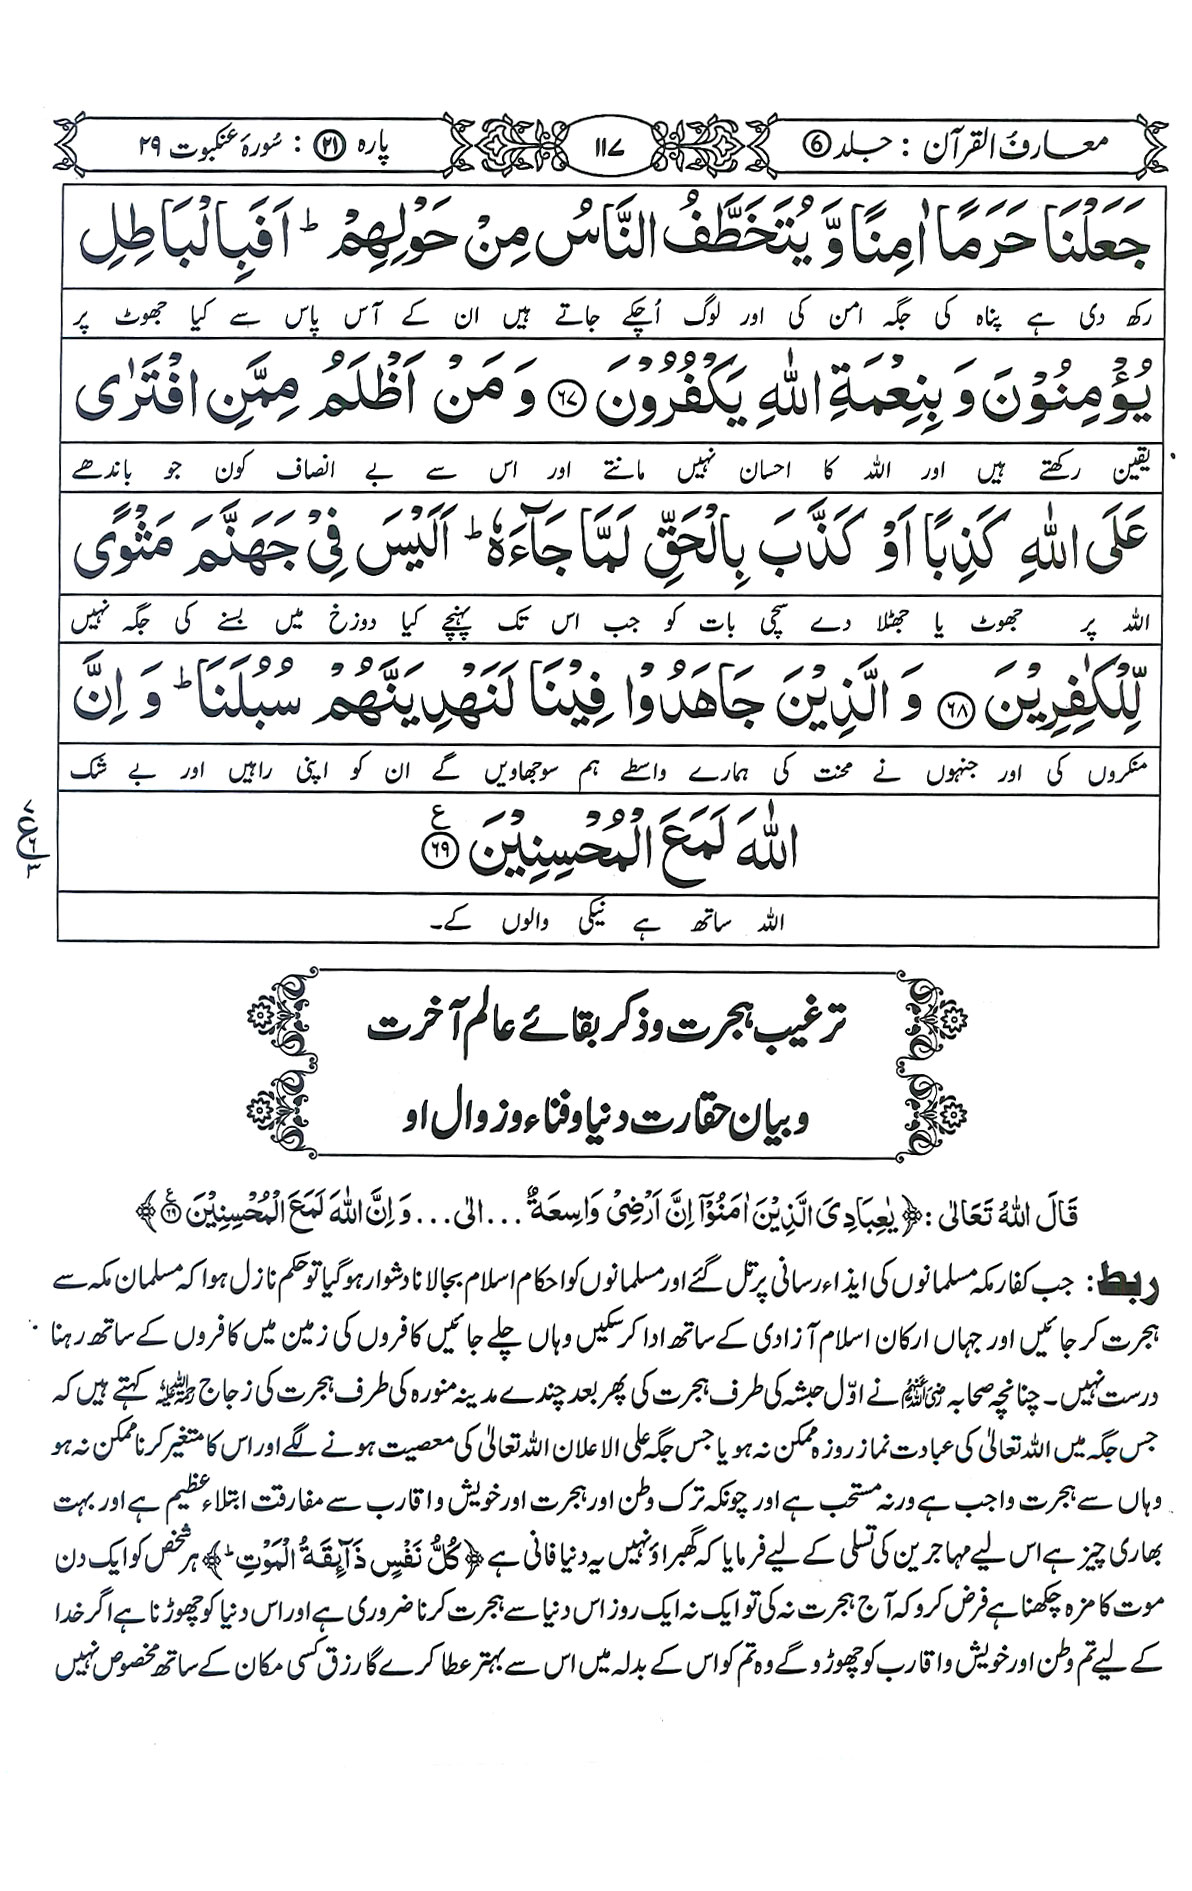 معارف القرآن : جلد 6
۱۱۷
پارہ ۲۱ : سُورۃ عنکبوت ۲۹
جَعَلْنَا حَرَمًا اٰمِنًا وَّ يُتَخَطَّفُ النَّاسُ مِنْ حَوْلِهِمْ ؕ اَفَبِالْبَاطِلِ
رکھ دی ہے پناہ کی جگہ امن کی اور لوگ اُچکے جاتے ہیں ان کے آس پاس سے کیا جھوٹ پر
يُؤْمِنُوْنَ وَ بِنِعْمَةِ اللّٰهِ يَكْفُرُوْنَ ۶۷ وَ مَنْ اَظْلَمُ مِمَّنِ افْتَرٰى
یقین رکھتے ہیں اور اللہ کا احسان نہیں مانتے اور اس سے بے انصاف کون جو باندھے
عَلَى اللّٰهِ كَذِبًا اَوْ كَذَّبَ بِالْحَقِّ لَمَّا جَآءَهٗ ؕ اَلَيْسَ فِيْ جَهَنَّمَ مَثْوًى
اللہ پر جھوٹ یا جھٹلا دے سچی بات کو جب اس تک پہنچے کیا دوزخ میں بسنے کی جگہ نہیں
لِّلْكٰفِرِيْنَ ۶۸ وَ الَّذِيْنَ جَاهَدُوْا فِيْنَا لَنَهْدِيَنَّهُمْ سُبُلَنَا ؕ وَ اِنَّ
منکروں کی اور جنہوں نے محنت کی ہمارے واسطے ہم سوجھاویں گے ان کو اپنی راہیں اور بے شک
اللّٰهَ لَمَعَ الْمُحْسِنِيْنَ ۶۹ ع
۷
ع
۶
۳
اللہ ساتھ ہے نیکی والوں کے۔
ترغیب ہجرت وذکر بقائے عالم آخرت
وبیان حقارت دنیا وفناء وزوال او
قَالَ اللّٰهُ تَعَالٰى : ﴿يٰعِبَادِيَ الَّذِيْنَ اٰمَنُوْۤا اِنَّ اَرْضِيْ وَاسِعَةٌ ... الٰى ... وَ اِنَّ اللّٰهَ لَمَعَ الْمُحْسِنِيْنَ ۶۹ ع﴾
ربط: جب کفار مکہ مسلمانوں کی ایذاء رسانی پر تل گئے اور مسلمانوں کو احکام اسلام بجالانا دشوار ہوگیا تو حکم نازل ہوا کہ مسلمان مکہ سے
ہجرت کر جائیں اور جہاں ارکان اسلام آزادی کے ساتھ ادا کرسکیں وہاں چلے جائیں کافروں کی زمین میں کافروں کے ساتھ رہنا
درست نہیں۔ چنانچہ صحابہ رضی اللہ عنہم نے اوّل حبشہ کی طرف ہجرت کی پھر بعد چندے مدینہ منورہ کی طرف ہجرت کی زجاج رحمہ اللہ کہتے ہیں کہ
جس جگہ میں اللہ تعالیٰ کی عبادت نماز روزہ ممکن نہ ہو یا جس جگہ علی الاعلان اللہ تعالیٰ کی معصیت ہونے لگے اور اس کا متغیر کرنا ممکن نہ ہو
وہاں سے ہجرت واجب ہے ورنہ مستحب ہے اور چونکہ ترک وطن اور ہجرت اور خویش واقارب سے مفارقت ابتلاء عظیم ہے اور بہت
بھاری چیز ہے اس لیے مہاجرین کی تسلی کے لیے فرمایا کہ گھبراؤ نہیں یہ دنیا فانی ہے ﴿كُلُّ نَفْسٍ ذَآىِٕقَةُ الْمَوْتِ ؕ﴾ ہر شخص کو ایک دن
موت کا مزہ چکھنا ہے فرض کرو کہ آج ہجرت نہ کی تو ایک نہ ایک روز اس دنیا سے ہجرت کرنا ضروری ہے اور اس دنیا کو چھوڑنا ہے اگر خدا
کے لیے تم وطن اور خویش واقارب کو چھوڑو گے وہ تم کو اس کے بدلہ میں اس سے بہتر عطا کرے گا رزق کسی مکان کے ساتھ مخصوص نہیں